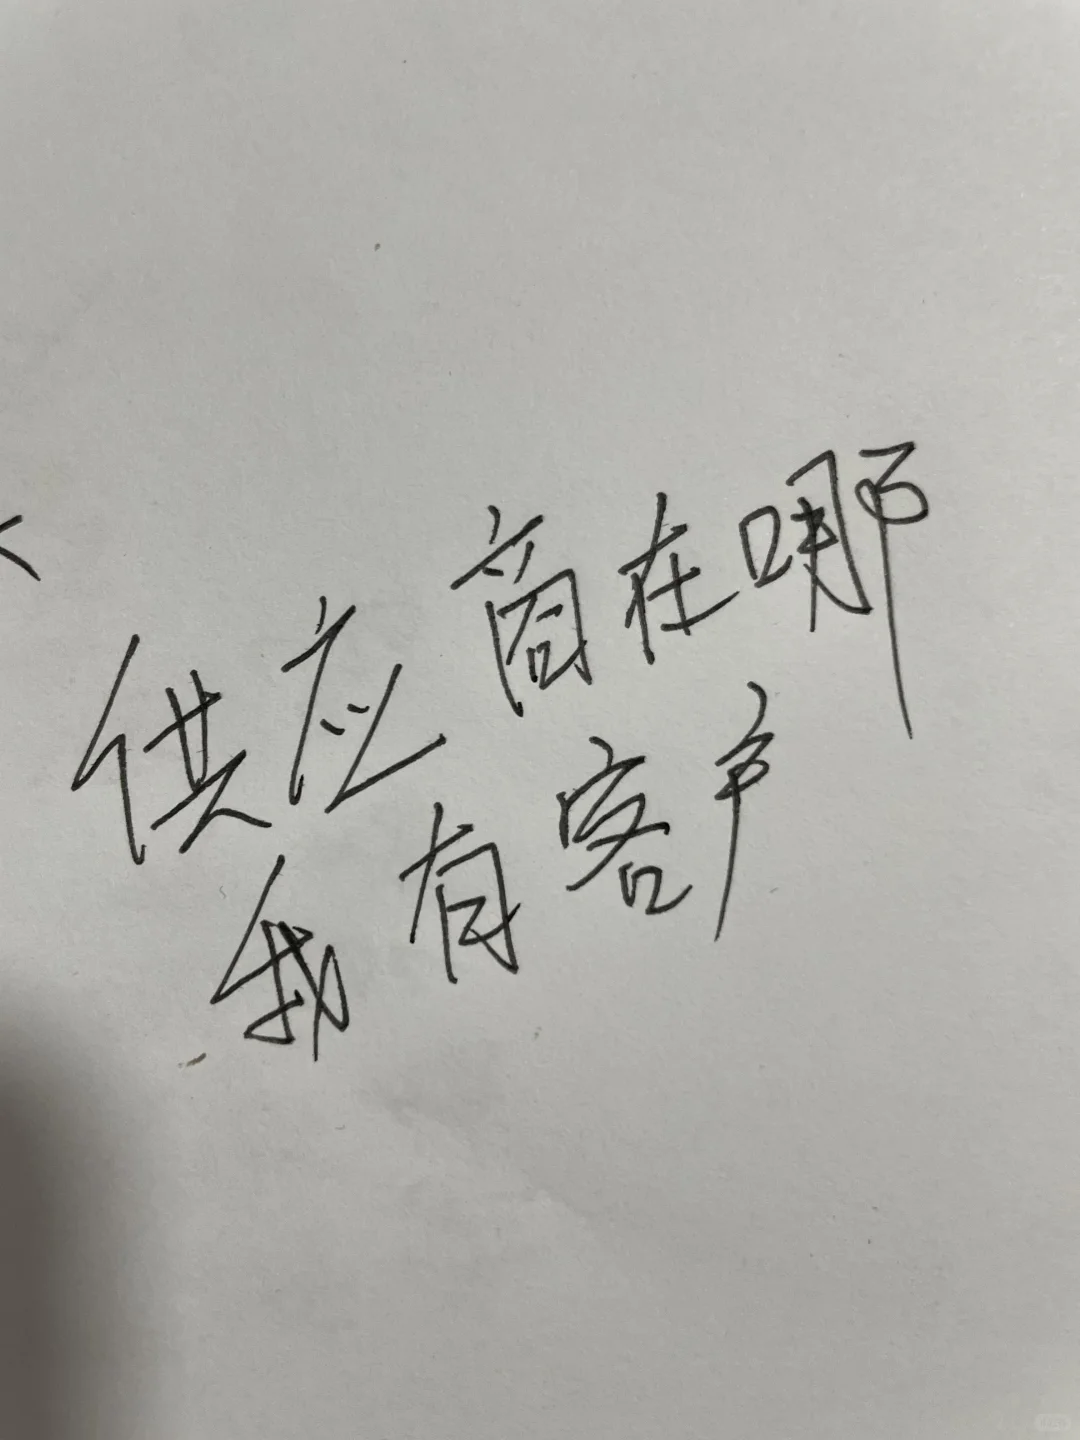 供应商在哪
我有客户